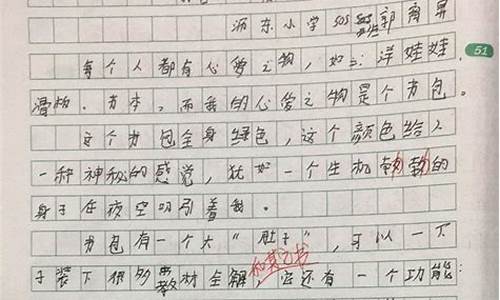 沥东小学505班郭
51
每个人都有心爱之物，如：洋娃娃、
滑板、书本，而我的心爱之物是个书包。
这个书包全身绿色，这个颜色给人
一种神秘的感觉，犹如一个生机勃勃的
身于在夜空吸引着我。
书包有一个大“肚子”，可以一下
子装下很多教材全解和其它书它还有一个功能